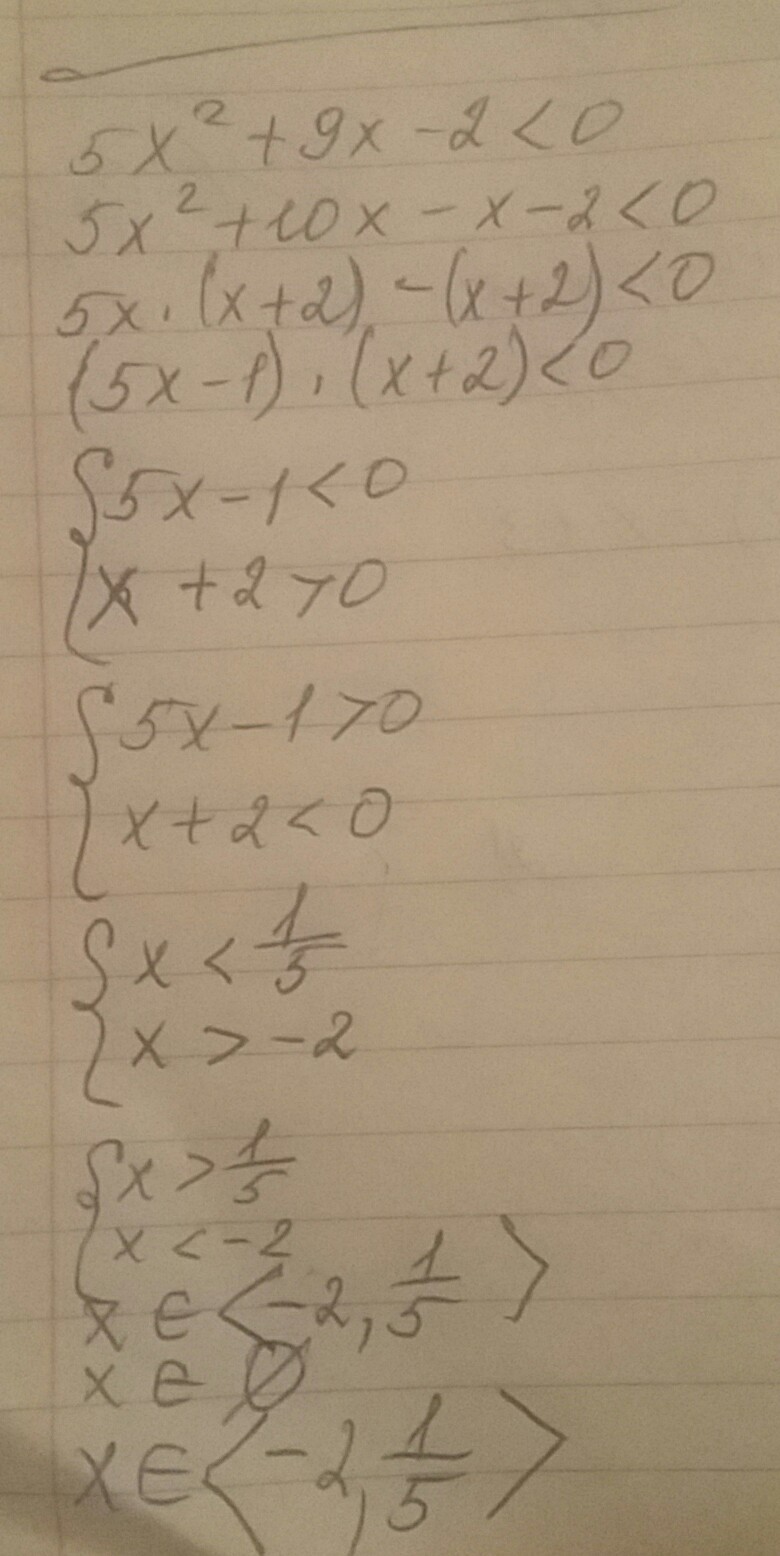 5x² + 9x - 2 < 0
5x² + 10x - x - 2 < 0
5x · (x + 2) - (x + 2) < 0
(5x - 1) · (x + 2) < 0
{ 5x - 1 < 0
x + 2 > 0
{ 5x - 1 > 0
x + 2 < 0
{ x < 1/5
x > -2
{ x > 1/5
x < -2
x ∈ ⟨-2, 1/5⟩
x ∈ ∅
x ∈ ⟨-2, 1/5⟩